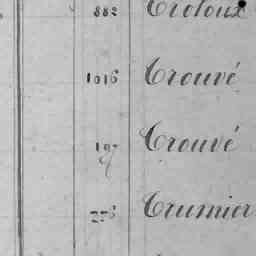 882 Trotoux
1016 Trouvé
197 Trouvé
276 Trumier